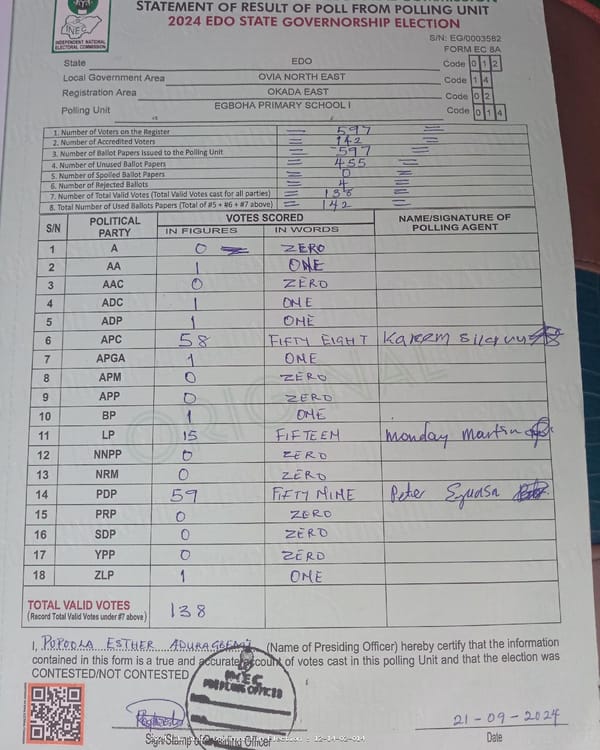 STATEMENT OF RESULT OF POLL FROM POLLING UNIT
2024 EDO STATE GOVERNORSHIP ELECTION
INEC
INDEPENDENT NATIONAL
ELECTORAL COMMISSION
S/N: EG/0003582
FORM EC 8A
State EDO Code 0 1 2
Local Government Area OVIA NORTH EAST Code 1 4
Registration Area OKADA EAST Code 0 2
Polling Unit EGBOHA PRIMARY SCHOOL I Code 0 1 4
1. Number of Voters on the Register = 597 =
2. Number of Accredited Voters = 142 =
3. Number of Ballot Papers Issued to the Polling Unit = 597 =
4. Number of Unused Ballot Papers = 455 =
5. Number of Spoiled Ballot Papers = 0 =
6. Number of Rejected Ballots = 4 =
7. Number of Total Valid Votes (Total Valid Votes cast for all parties) = 138 =
8. Total Number of Used Ballots Papers (Total of #5 + #6 + #7 above) = 142 =
S/N POLITICAL PARTY VOTES SCORED NAME/SIGNATURE OF POLLING AGENT
IN FIGURES IN WORDS
1 A 0 ZERO
2 AA 1 ONE
3 AAC 0 ZERO
4 ADC 1 ONE
5 ADP 1 ONE
6 APC 58 FIFTY EIGHT Kareem
7 APGA 1 ONE
8 APM 0 ZERO
9 APP 0 ZERO
10 BP 1 ONE
11 LP 15 FIFTEEN Monday Martin
12 NNPP 0 ZERO
13 NRM 0 ZERO
14 PDP 59 FIFTY NINE Peter
15 PRP 0 ZERO
16 SDP 0 ZERO
17 YPP 0 ZERO
18 ZLP 1 ONE
ORIGINAL
TOTAL VALID VOTES 138
(Record Total Valid Votes under #7 above)
I, POPOOLA ESTHER (Name of Presiding Officer) hereby certify that the information
contained in this form is a true and accurate account of votes cast in this polling Unit and that the election was
CONTESTED/NOT CONTESTED
INEC
PRESIDING OFFICER
21-09-2024
Sign/Stamp of Presiding Officer
12-14-02-014
Date